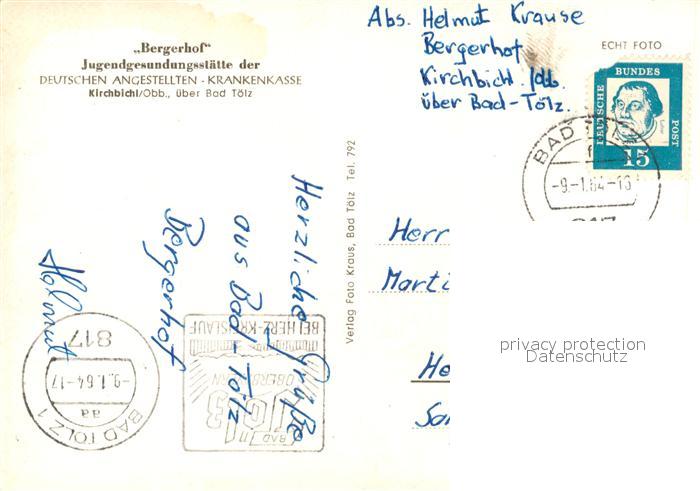 „Bergerhof“
Jugendgesundungsstätte der
DEUTSCHEN ANGESTELLTEN - KRANKENKASSE
Kirchbichl/Obb., über Bad Tölz
Abs. Helmut Krause
Bergerhof
Kirchbichl./Obb.
über Bad-Tölz.
ECHT FOTO
DEUTSCHE
BUNDES
POST
Luther
15
BAD TÖLZ
-9.-1.64-16
Verlag Foto Kraus, Bad Tölz Tel. 792
Herzliche Grüße
aus Bad-Tölz
Bergerhof
Helmut
Herr
Marti
He
Sa
privacy protection
Datenschutz
817
-9.1.64-17
aa
BAD TÖLZ 1
BAD
TÖLZ
OBERBAYERN
BEI HERZ-KREISLAUF